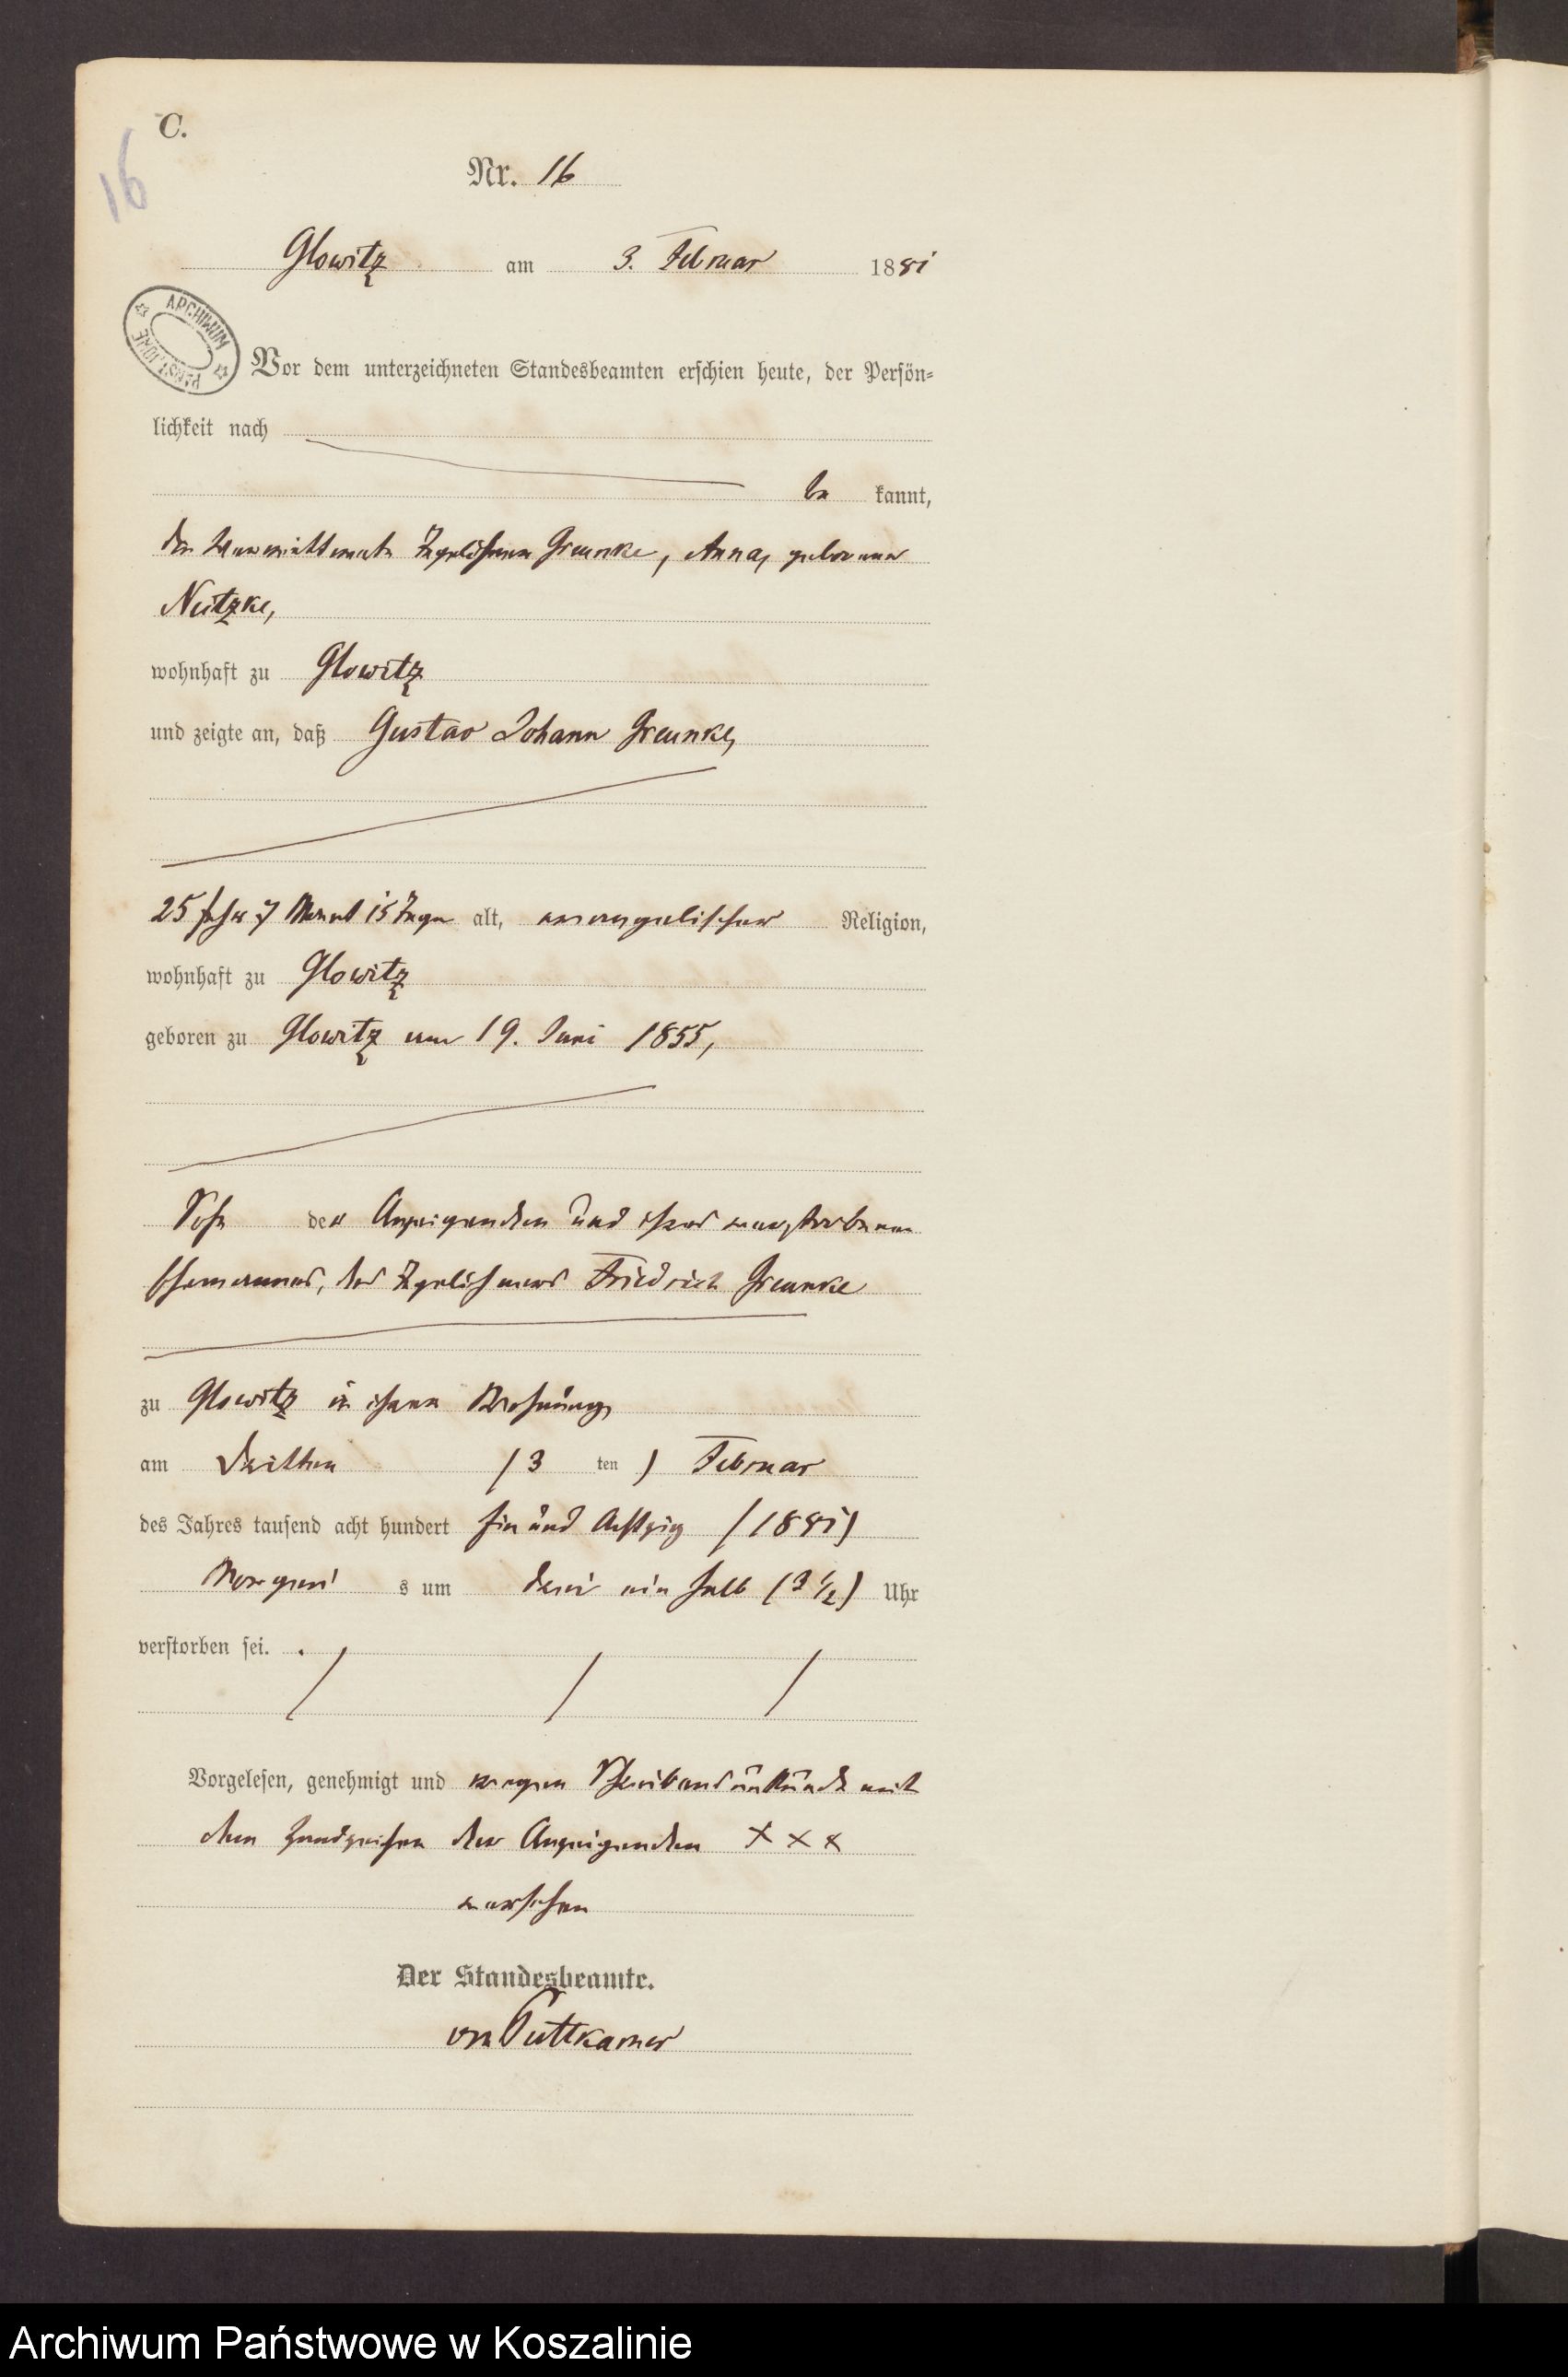 C.
16
Nr. 16
Glowitz am 3. Februar 1881
ARCHIWUM
Vor dem unterzeichneten Standesbeamten erschien heute, der Persön-
lichkeit nach
be kannt,
die verwittwete Tagelöhner Greunke, Anna, geborene
Neitzke,
wohnhaft zu Glowitz
und zeigte an, daß Gustav Johann Greunke,
25 Jahr 7 Monat 15 Tage alt, evangelischer Religion,
wohnhaft zu Glowitz
geboren zu Glowitz am 19. Juni 1855,
Sohn der Anzeigenden und ihres verstorbenen
Ehemannes, des Tagelöhners Friedrich Greunke
zu Glowitz in ihrer Wohnung
am dritten (3 ten) Februar
des Jahres tausend acht hundert ein und achtzig (1881)
Morgen s um drei ein halb (3 1/2) Uhr
verstorben sei.
Vorgelesen, genehmigt und wegen Schreibensunkunde mit
dem Handzeichen der Anzeigenden x x x
versehen
Der Standesbeamte.
von Puttkamer
Archiwum Państwowe w Koszalinie